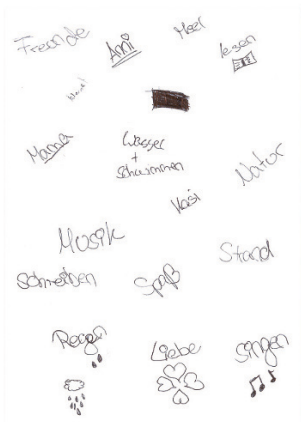 Freunde
Ani
Meer
lesen
Mama
Wasser
+
Schwimmen
Natur
Kasi
Musik
Strand
Schreiben
Spaß
Regen
Liebe
Singen